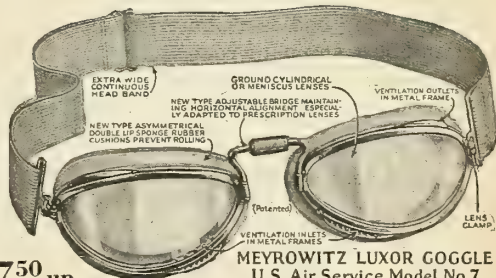 EXTRA WIDE
CONTINUOUS
HEAD BAND
GROUND CYLINDRICAL
OR MENISCUS LENSES
NEW TYPE ADJUSTABLE BRIDGE MAINTAIN-
ING HORIZONTAL ALIGNMENT ESPECIAL-
LY ADAPTED TO PRESCRIPTION LENSES
VENTILATION OUTLETS
IN METAL FRAME
NEW TYPE ASYMMETRICAL
DOUBLE LIP SPONGE RUBBER
CUSHIONS PREVENT ROLLING
(Patented)
LENS
CLAMP
VENTILATION INLETS
IN METAL FRAMES
750 up
MEYROWITZ LUXOR GOGGLE
U.S. Air Service Model No. 7